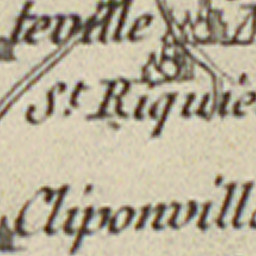 teville
St. Riquie
Cliponville